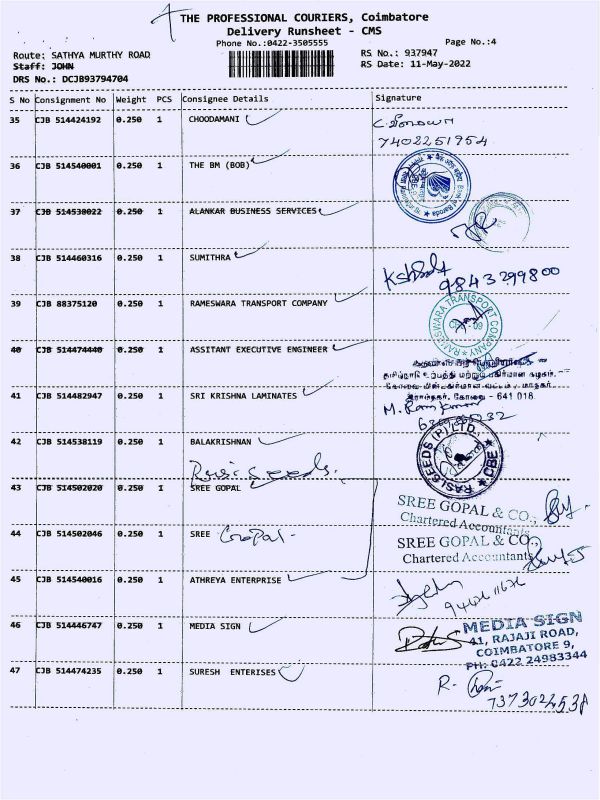 THE PROFESSIONAL COURIERS, Coimbatore
Delivery Runsheet - CMS
Phone No.:0422-3505555
Page No.:4
Route: SATHYA MURTHY ROAD
RS No.: 937947
Staff: JOHN
RS Date: 11-May-2022
DRS No.: DCJB93794704
S No Consignment No Weight PCS Consignee Details Signature
35 CJB 514424192 0.250 1 CHOODAMANI
7402251954
36 CJB 514540001 0.250 1 THE BM (BOB)
Bank of Baroda
37 CJB 514530022 0.250 1 ALANKAR BUSINESS SERVICES
38 CJB 514460316 0.250 1 SUMITHRA
9843299800
39 CJB 88375120 0.250 1 RAMESWARA TRANSPORT COMPANY
RAMESWARA TRANSPORT COMPANY
40 CJB 514474440 0.250 1 ASSITANT EXECUTIVE ENGINEER
தமிழ்நாடு உற்பத்தி மற்றும் பகிர்மான கழகம்,
கோவை - 641 018.
41 CJB 514482947 0.250 1 SRI KRISHNA LAMINATES
M. Ram Kumar
42 CJB 514538119 0.250 1 BALAKRISHNAN
Rasi seeds.
RASI SEEDS (P) LTD. CBE
43 CJB 514502020 0.250 1 SREE GOPAL
SREE GOPAL & CO.,
Chartered Accountants
44 CJB 514502046 0.250 1 SREE Gopal-
SREE GOPAL & CO.,
Chartered Accountants
45 CJB 514540016 0.250 1 ATHREYA ENTERPRISE
46 CJB 514446747 0.250 1 MEDIA SIGN
MEDIA SIGN
41, RAJAJI ROAD,
COIMBATORE 9,
PH: 0422 24983344
47 CJB 514474235 0.250 1 SURESH ENTERISES
R.
7373024538